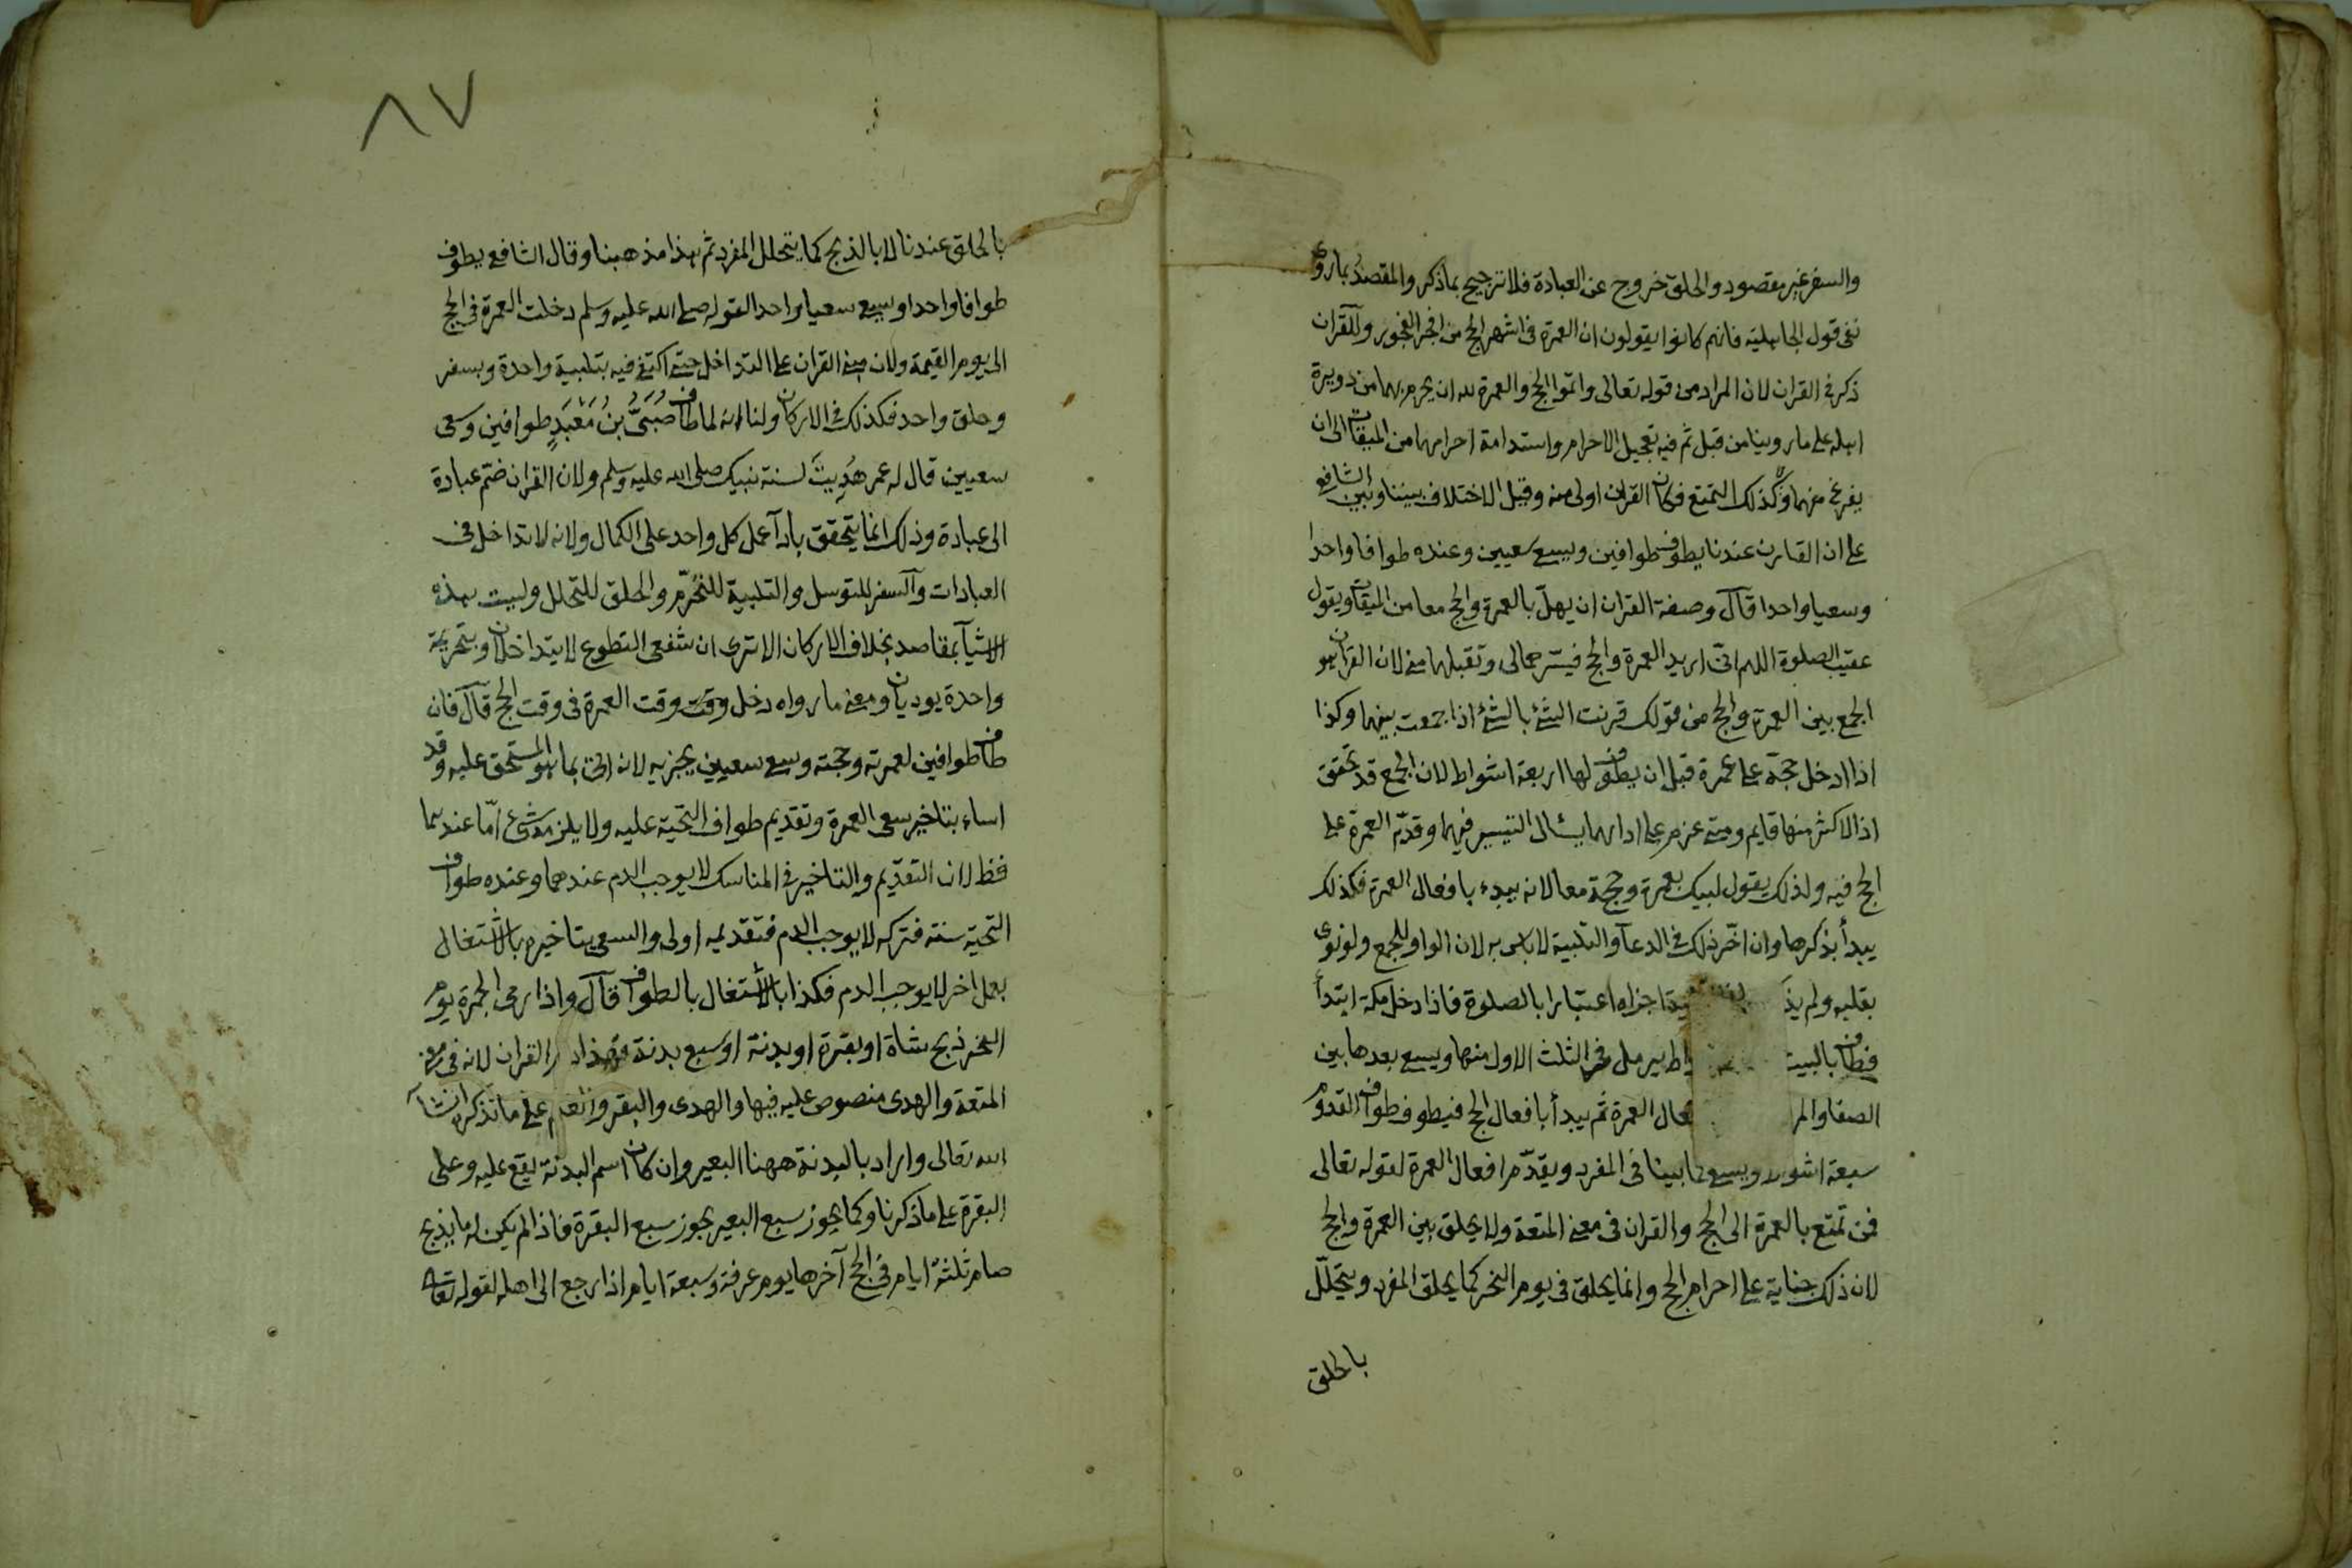 والسفر غير مقصود والحلق خروج عن العبادة فلا ترجيح بما ذكر والمقصد بما روى
نفى قول الجاهلية فانهم كانوا يقولون ان العمرة فى اشهر الحج من افجر الفجور وللقران
ذكر فى القران لان المراد من قوله تعالى واتموا الحج والعمرة لله ان يحرم بهما من دويرة
اهله على ما روينا من قبل ثم فيه تعجيل الاحرام واستدامة احرامهما من الميقات الى ان
يفرغ منهما ولا كذلك التمتع فكان القران اولى منه وقيل الاختلاف بيننا وبين الشافعى
على ان القارن عندنا يطوف طوافين ويسعى سعيين وعنده طوافا واحدا
وسعيا واحدا قال وصفة القران ان يهلّ بالعمرة والحج معا من الميقات ويقول
عقيب الصلوة اللهم انى اريد العمرة والحج فيسّرهما لى وتقبلهما منى لان القران هو
الجمع بين العمرة والحج من قولك قرنت الشئ بالشئ اذا جمعت بينهما وكذا
اذا ادخل حجة على عمرة قبل ان يطوف لها اربعة اشواط لان الجمع قد تحقق
اذ الاكثر منها قايم ومتى عزم على ادايهما يسأل التيسير فيهما وقدّم العمرة على
الحج فيه ولذلك يقول لبيك بعمرة وحجة معا لانه يبدء بافعال العمرة فكذلك
يبدأ بذكرها وان اخّر ذلك فى الدعآ والتلبية لا باس به لان الواو للجمع ولو نوى
بقلبه ولم يذ اجزاه اعتبارا بالصلوة فاذا دخل مكة ابتدأ
فطاف بالبيت اط يرمل فى الثلث الاول منها ويسعى بعدها بين
الصفا والمر فعال العمرة ثم يبدأ بافعال الحج فيطوف طواف القدوم
سبعة اشواط ويسعى كما بينا فى المفرد ويقدّم افعال العمرة لقوله تعالى
فمن تمتع بالعمرة الى الحج والقران فى معنى المتعة ولا يحلق بين العمرة والحج
لان ذلك جناية على احرام الحج وانما يحلق فى يوم النحر كما يحلق المفرد ويتحلّل
بالحلق
٨٧
بالحلق عندنا لا بالذبح كما يتحلل المفرد ثم هذا مذهبنا وقال الشافعى يطوف
طوافا واحدا ويسعى سعيا واحدا لقوله صلى الله عليه وسلم دخلت العمرة فى الحج
الى يوم القيمة ولان مبنى القران على التداخل حتى اكتفى فيه بتلبية واحدة وبسفر
وحلق واحد فكذلك فى الاركان ولنا انه لما طاف صُبَىُّ بنُ مَعْبَدٍ طوافين وسعى
سعيين قال له عمر هُدِيتَ لسنة نبيك صلى الله عليه وسلم ولان القران ضم عبادة
الى عبادة وذلك انما يتحقق بادآ عمل كل واحد على الكمال ولانه لا تداخل فى
العبادات والسفر للتوسل والتلبية للتحرّم والحلق للتحلل وليست هذه
الاشيآ بمقاصد بخلاف الاركان الا ترى ان شفعى التطوع لا يتداخلان وبتحريمة
واحدة يوديان ومعنى ما رواه دخل وقت وقت العمرة فى وقت الحج قال فان
طاف طوافين لعمرته وحجته وسعى سعيين يجزيه لانه اتى بما هو المستحق عليه وقد
اساء بتاخير سعى العمرة وتقديم طواف التحية عليه ولا يلزمه شئ امّا عندهما
فظ لان التقديم والتاخير فى المناسك لا يوجب الدم عندهما وعنده طواف
التحية سنة فتركه لا يوجب الدم فتقديمه اولى والسعى بتاخيره بالاشتغال
بعمل اخر لا يوجب الدم فكذا بالاشتغال بالطواف قال واذا رمى الجمرة يوم
النحر ذبح شاة او بقرة او بدنة او سبع بدنة فهذا دم القران لانه فى معنى
المتعة والهدى منصوص عليه فيها والهدى والبقر والغنم على ما نذكر ان شآ
الله تعالى واراد بالبدنة ههنا البعير وان كان اسم البدنة يقع عليه وعلى
البقرة على ما ذكرنا وكما يجوز سبع البعير يجوز سبع البقرة فاذا لم يكن له ما يذبح
صام ثلثة ايام فى الحج آخرها يوم عرفة وسبعة ايام اذا رجع الى اهله لقوله تعالى